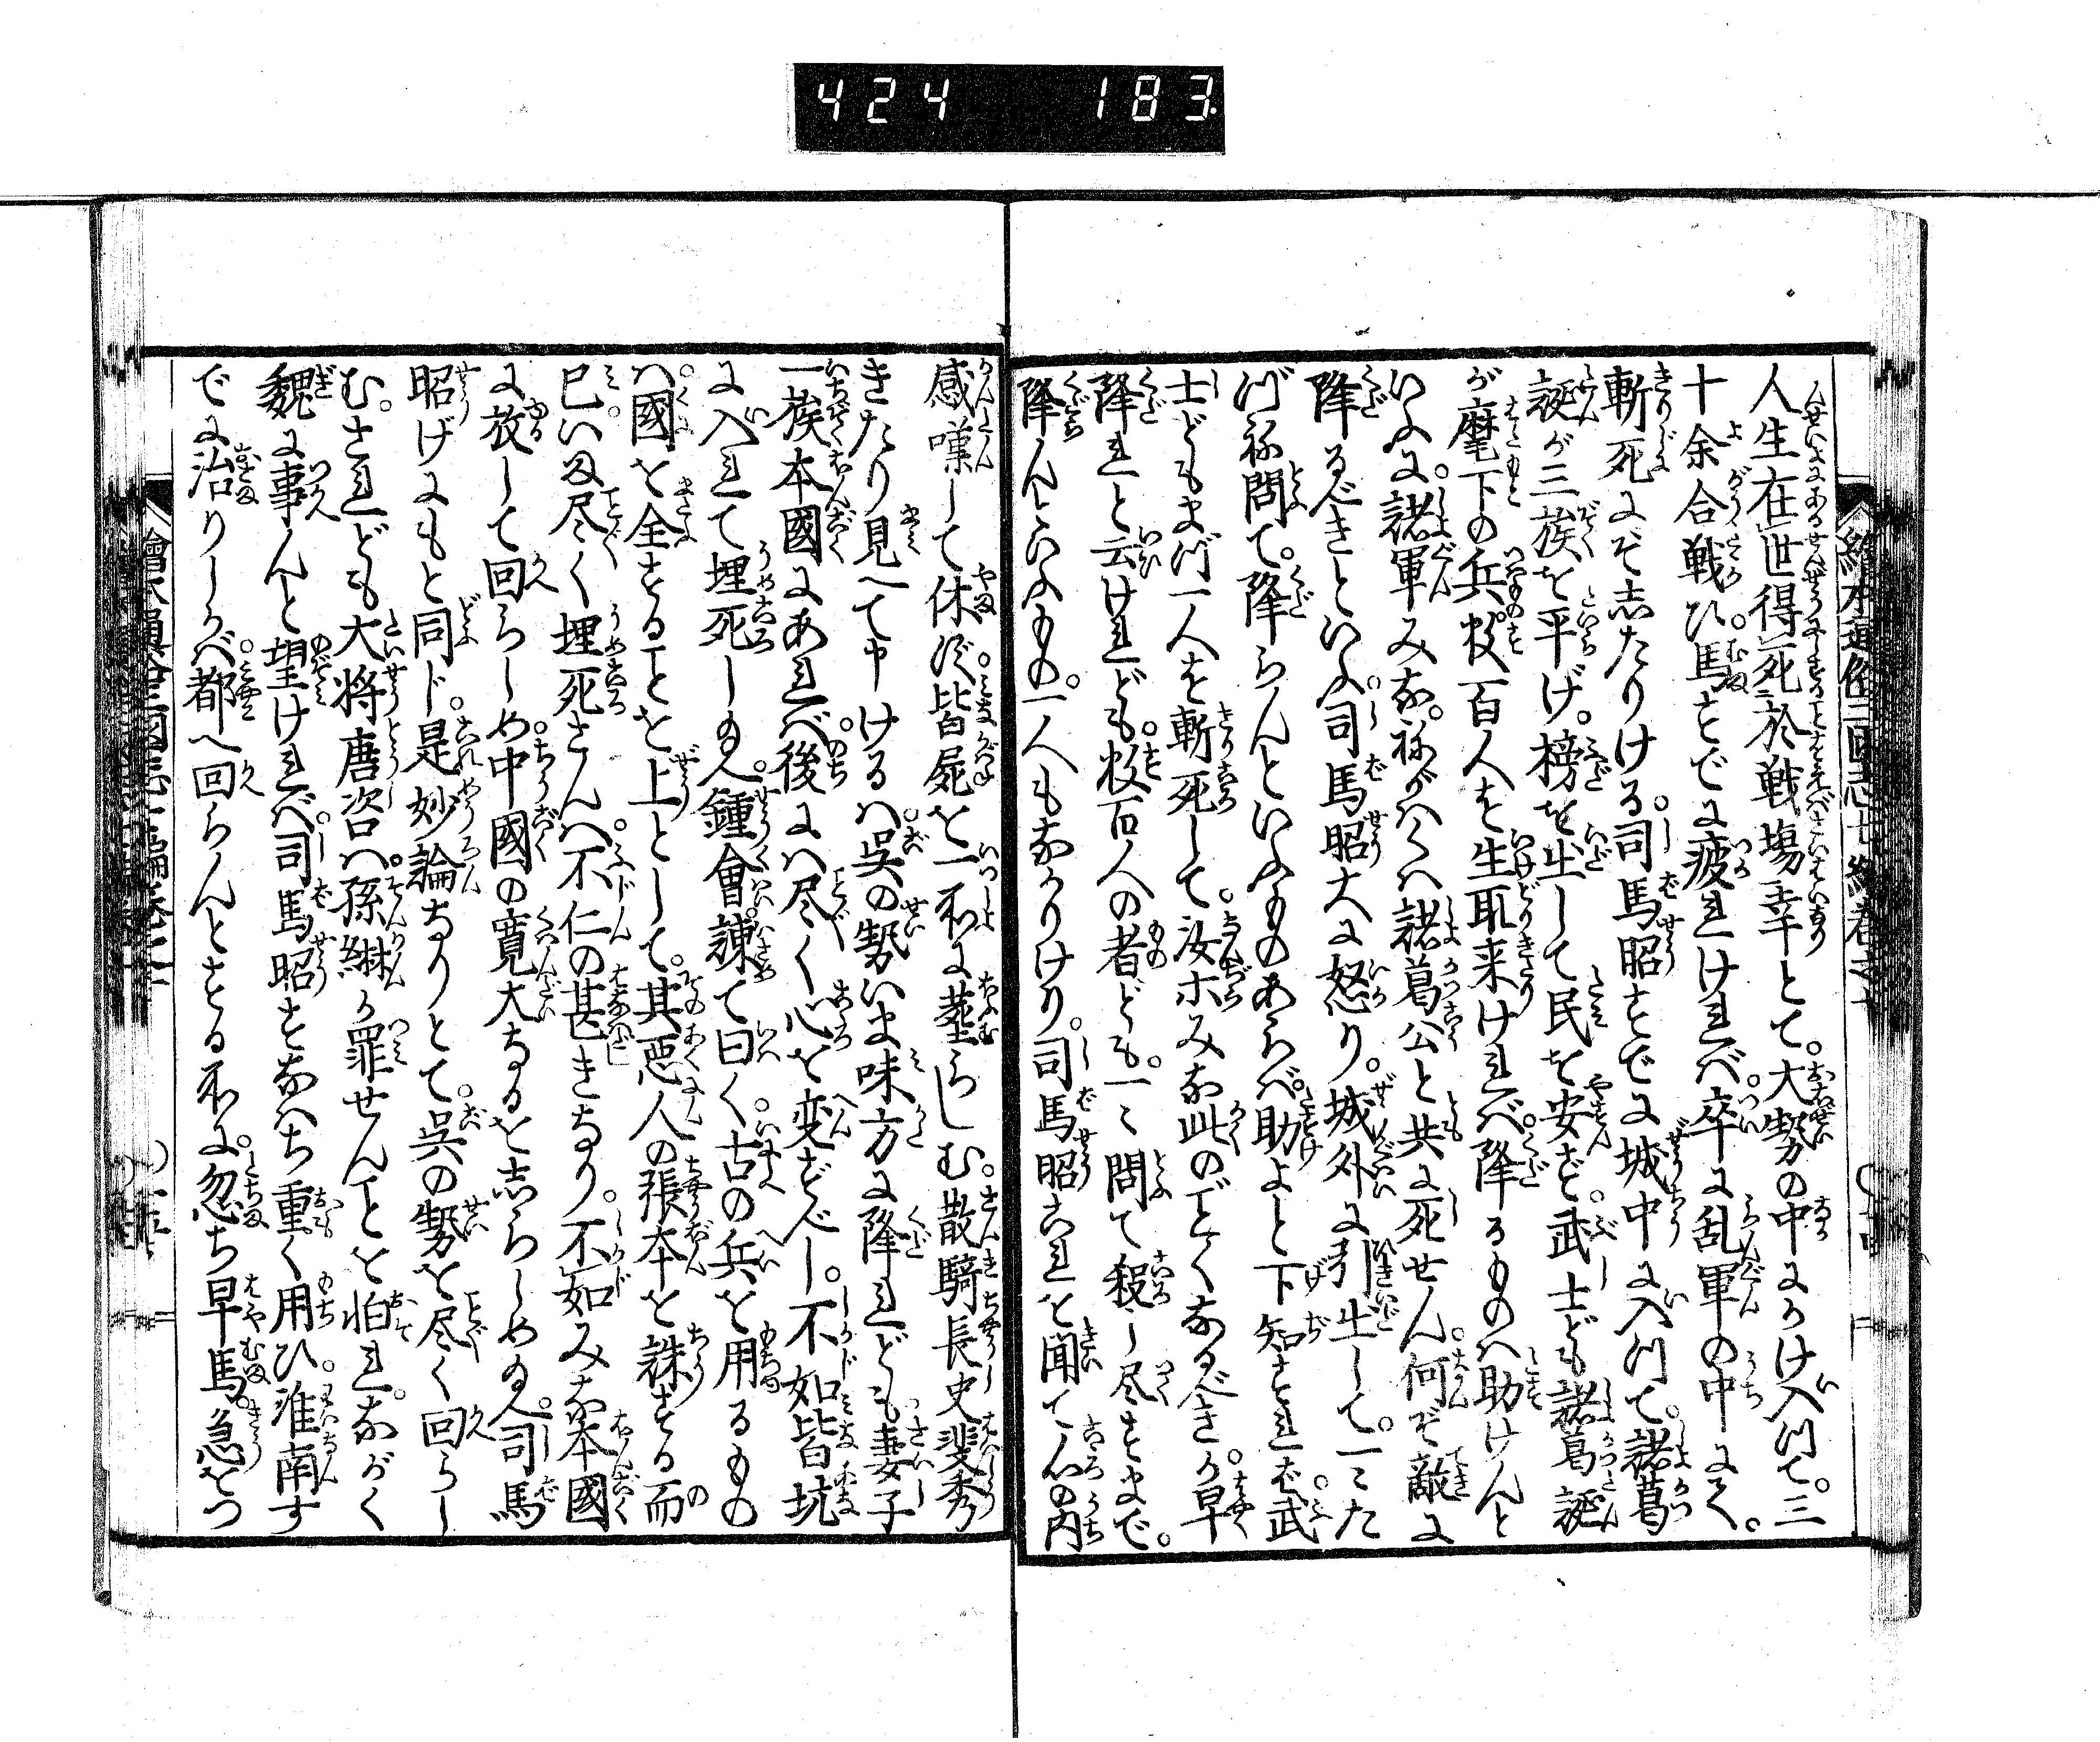 424 183
人生在世得死於戦場幸とて。大勢の中にかけ入川て。三
十余合戦ひ。馬すでに疲れければ。卒に乱軍の中にて。
斬死にぞ志たりける。司馬昭すでに城中に入川て。諸葛
誕が三族を平げ。榜を出して民を安ず。武士ども諸葛誕
が麾下の兵。数百人を生取来ければ。降るものハ助けんと
いふに。諸軍みな。ねがハくハ諸葛公と共に死せん。何ぞ敵に
降るべきといふ。司馬昭大に怒り。城外に引出して。一々た
づね問て。降らんといふものあらば。助よと下知すれば。武
士どもまづ一人を斬死して。汝ホみな此のごとくなるべきか。早
降れと云けれども。数百人の者ども。一々問て殺し尽すまで。
降んといふもの。一人もなかりけり。司馬昭これを聞て心の内
感嘆して休ず。皆屍を一所に葬らしむ。散騎長史裴秀
きたり見へて申けるハ。呉の勢いま味方に降れども。妻子
一族本國にあれバ。後にハ尽く心を変ずべし。不如皆坑
に入れて埋死し給へ。鍾會諫て曰く。古の兵を用るもの
ハ。國を全することを上として。其悪人の張本を誅する而
已。いま尽く埋死さんハ。不仁の甚きなり。不如みな本國
に放して回らしめ。中國の寛大なるを志らしめ給へ。司馬
昭げにもと同じ。是妙論なりとて。呉の勢を尽く回らし
む。されども大将唐咨ハ。孫綝か罪せんことを怕れ。ながく
魏に事んと望ければ。司馬昭すなハち重く用ひ。淮南す
でに治りしかバ。都へ回らんとする所に。忽ち早馬。急をつ